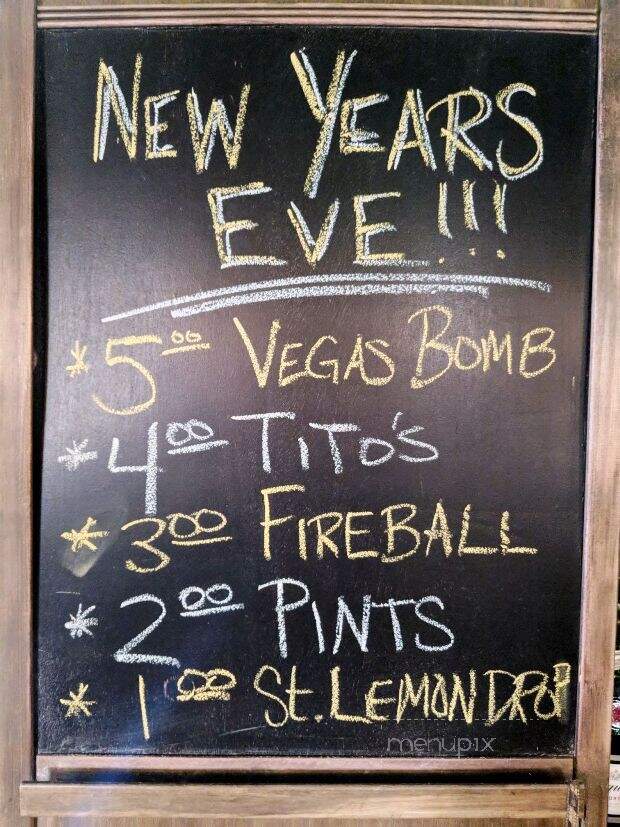 NEW YEARS
EVE!!!
* 5.00 VEGAS BOMB
* 4.00 TITO'S
* 3.00 FIREBALL
* 2.00 PINTS
* 1.00 St. LEMON DROP
menupix